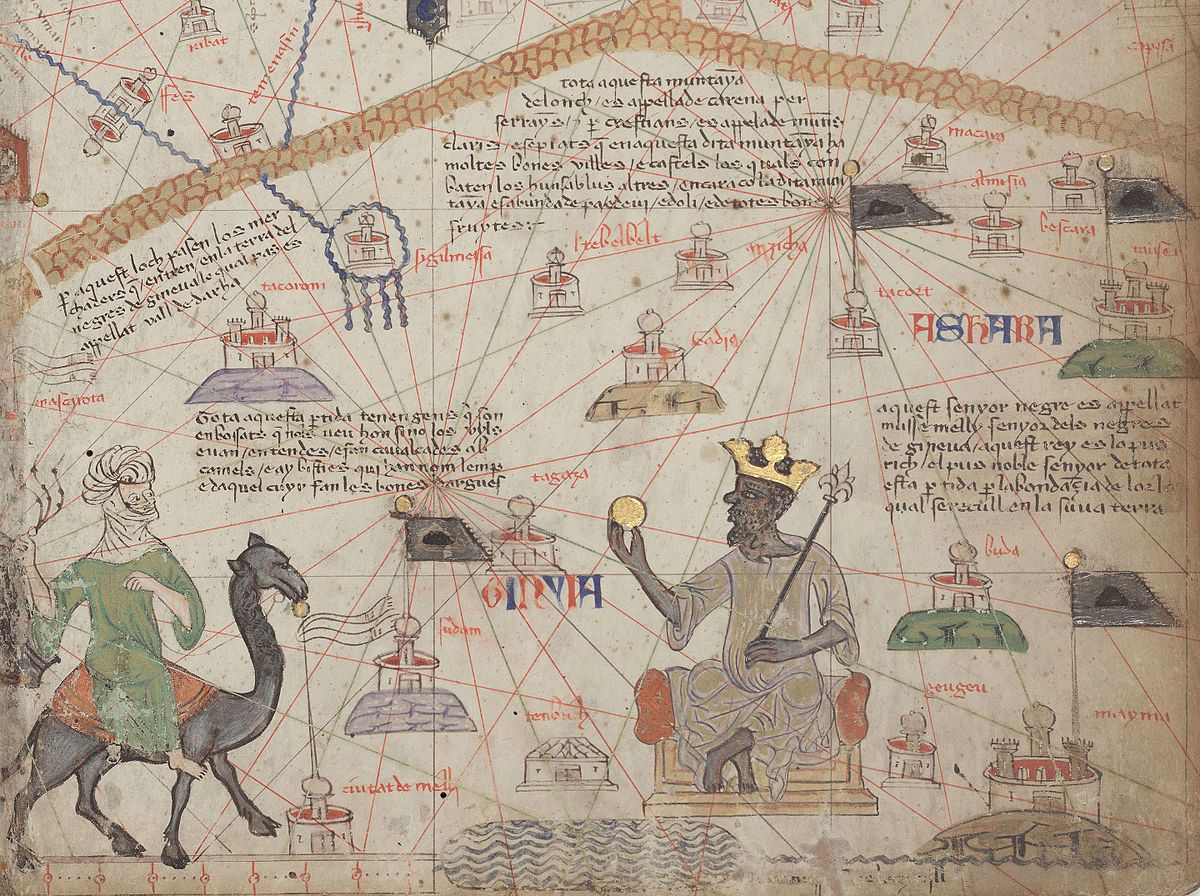 rabat
fes
tenensin
tota aquesta muntaya
delonch / es appellade carena per
serrayns / & per crestians / es appelade muntis
claris / e sepiats q en aquesta dita muntaya ha
moltes bones villes / e castels los quals con
baten los huns ab lus altres / encara co la dita mun
taya es abunda de pa e de vi / e doli / e de totes bones
fruytes :~
macara
almsia
bescara
p aquest loch pasen los mer
chaders q entren / en la terra del
negres de gineua lo qual pas es
appellat vall de darha
sigilmessa
tebelbelt
tacorom
tacort
ASHARA
Tota aquesta ptida tenen gens q son
enbossats q nols veu hom sino los vyls
e van / en tendes / e fan caualcades ab
camels / e ay bisties qui han nom lemp
e daquel cuyr fan les bones dargues
aquest senyor negre es appellat
musse melly senyor dels negres
de gineua / aquest rey es lo pus
rich / el pus noble senyor de tota
esta ptida p labondacia de lor lo
qual se recull en la suua terra
tagaza
buda
GINYIA
sudam
tenbuch
geugeu
mayma
ciutat de melli